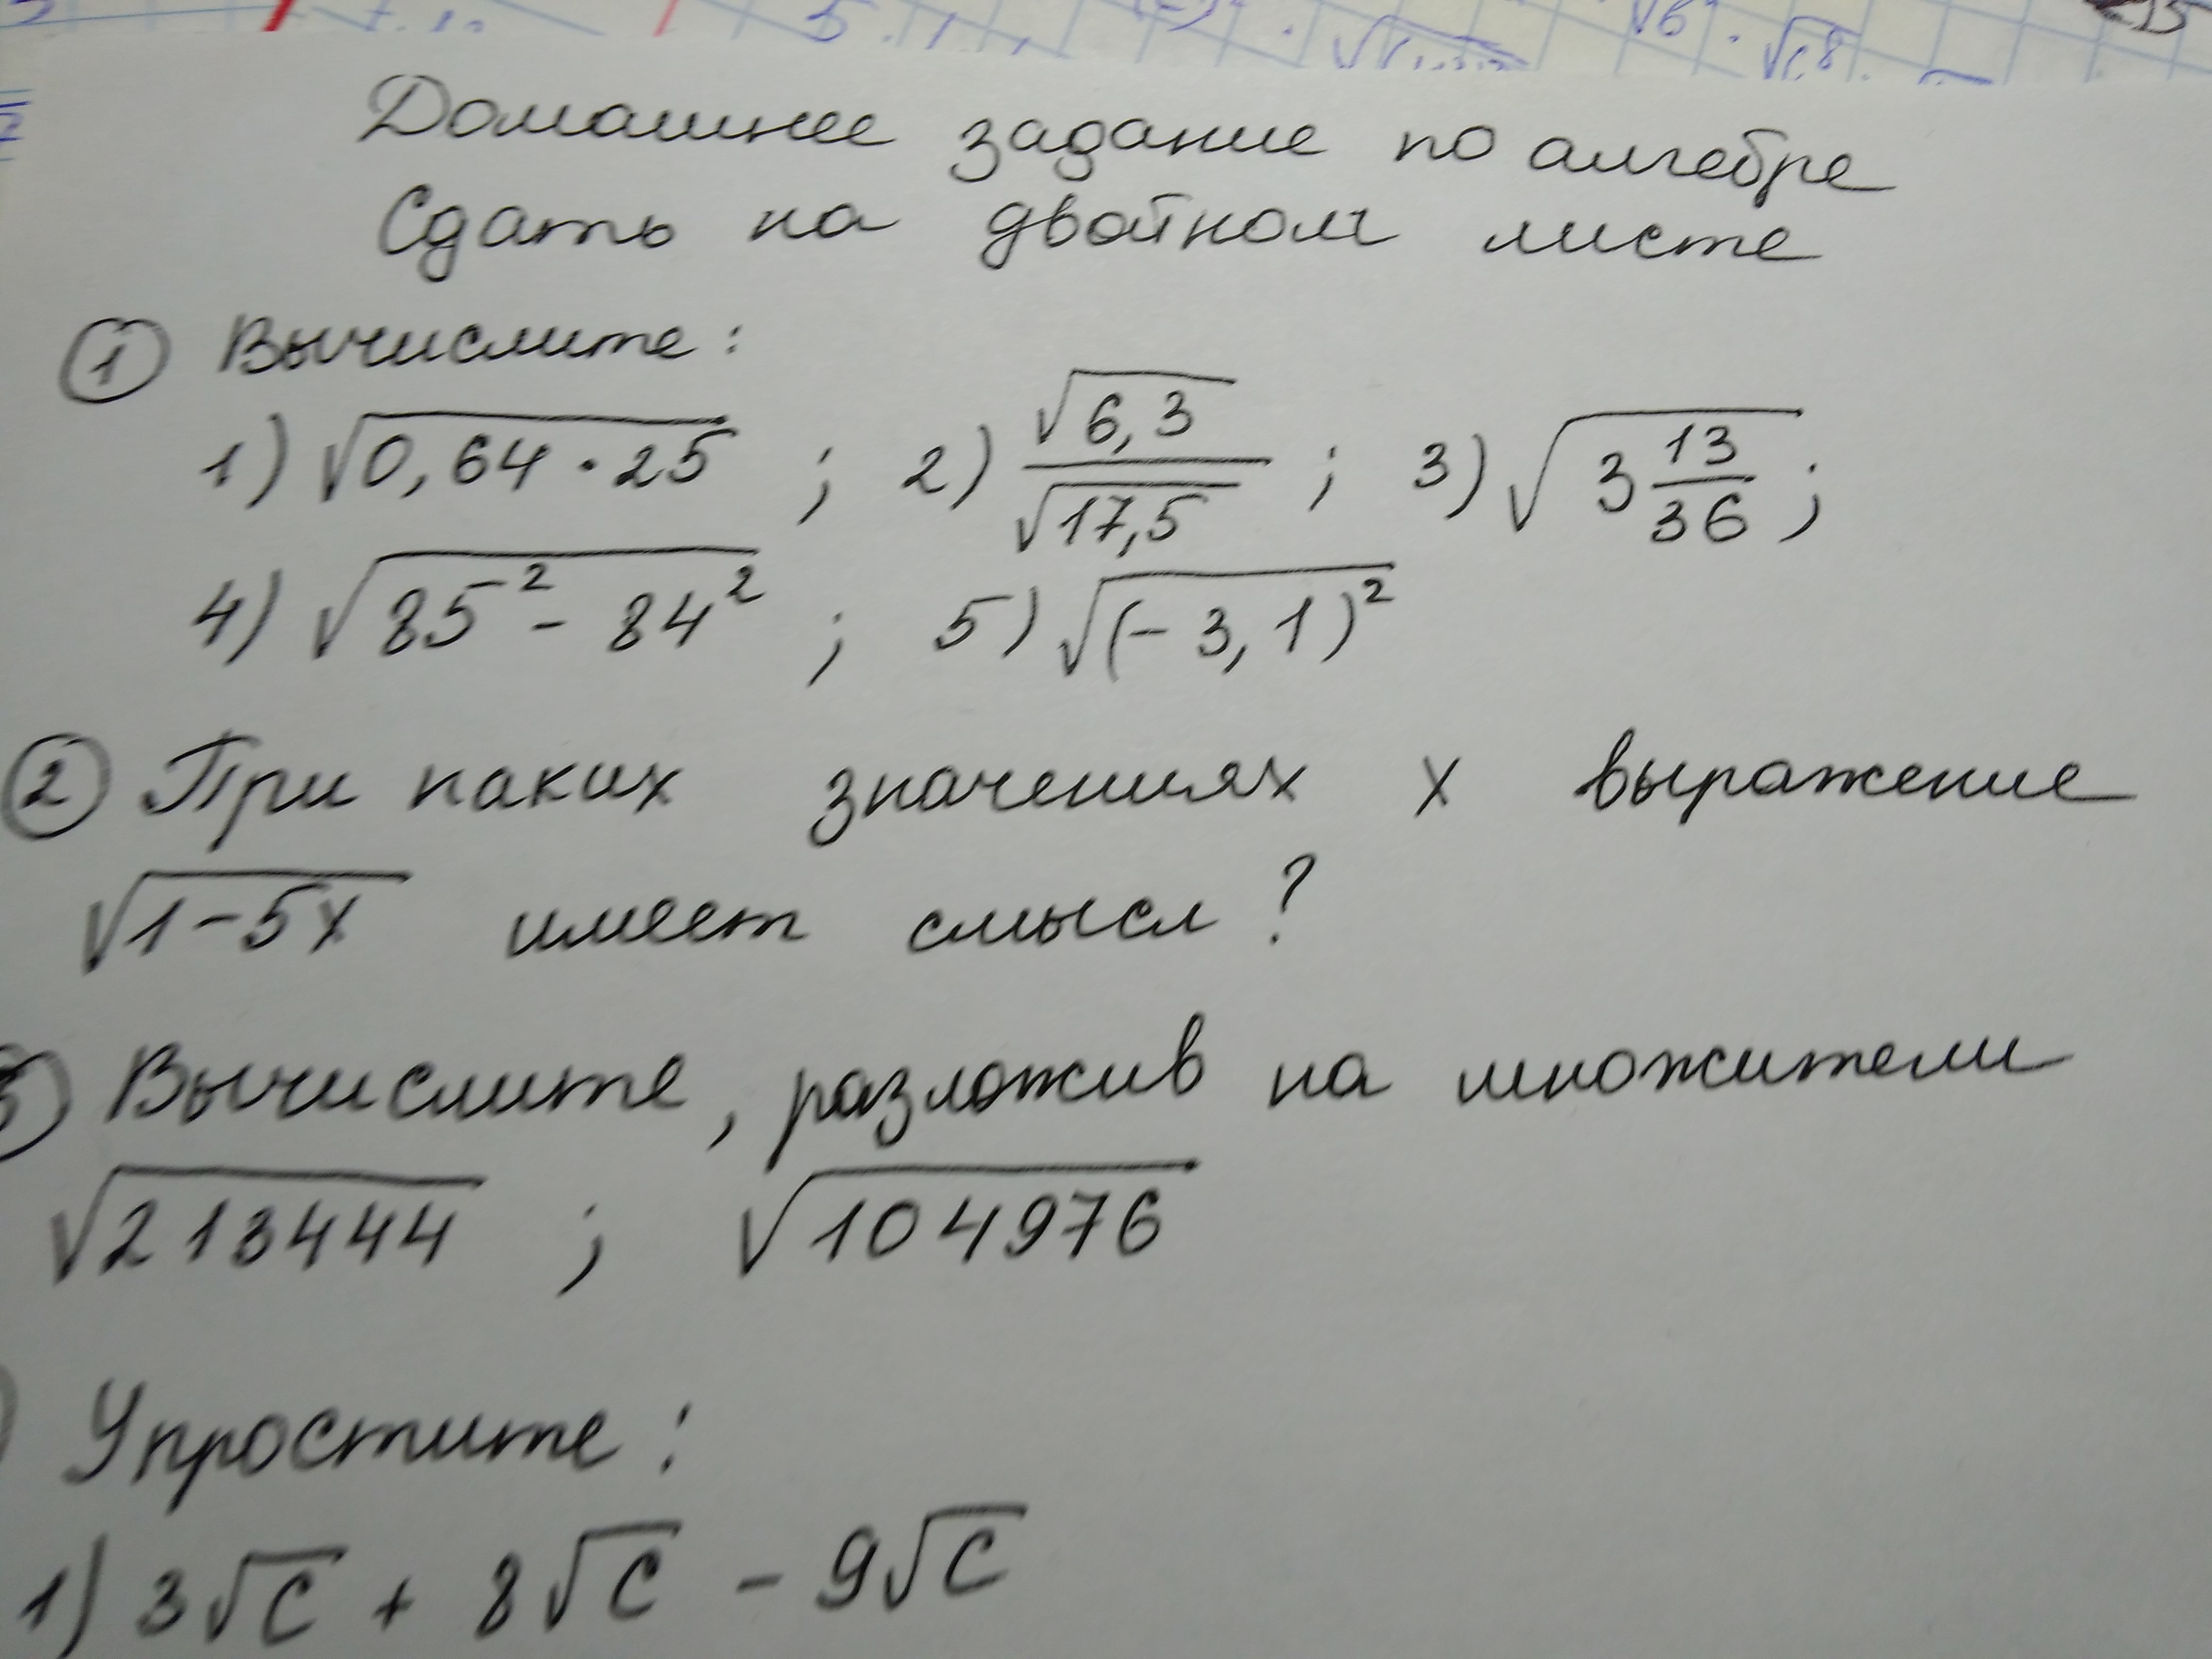 Домашнее задание по алгебре
Сдать на двойном листе
① Вычислите:
1) √0,64·25 ; 2) √6,3/√17,5 ; 3) √3 13/36 ;
4) √85² - 84² ; 5) √(-3,1)²
② При каких значениях х выражение
√1-5х имеет смысл?
3) Вычислите, разложив на множители
√213444 ; √104976
Упростите:
1) 3√c + 8√c - 9√c